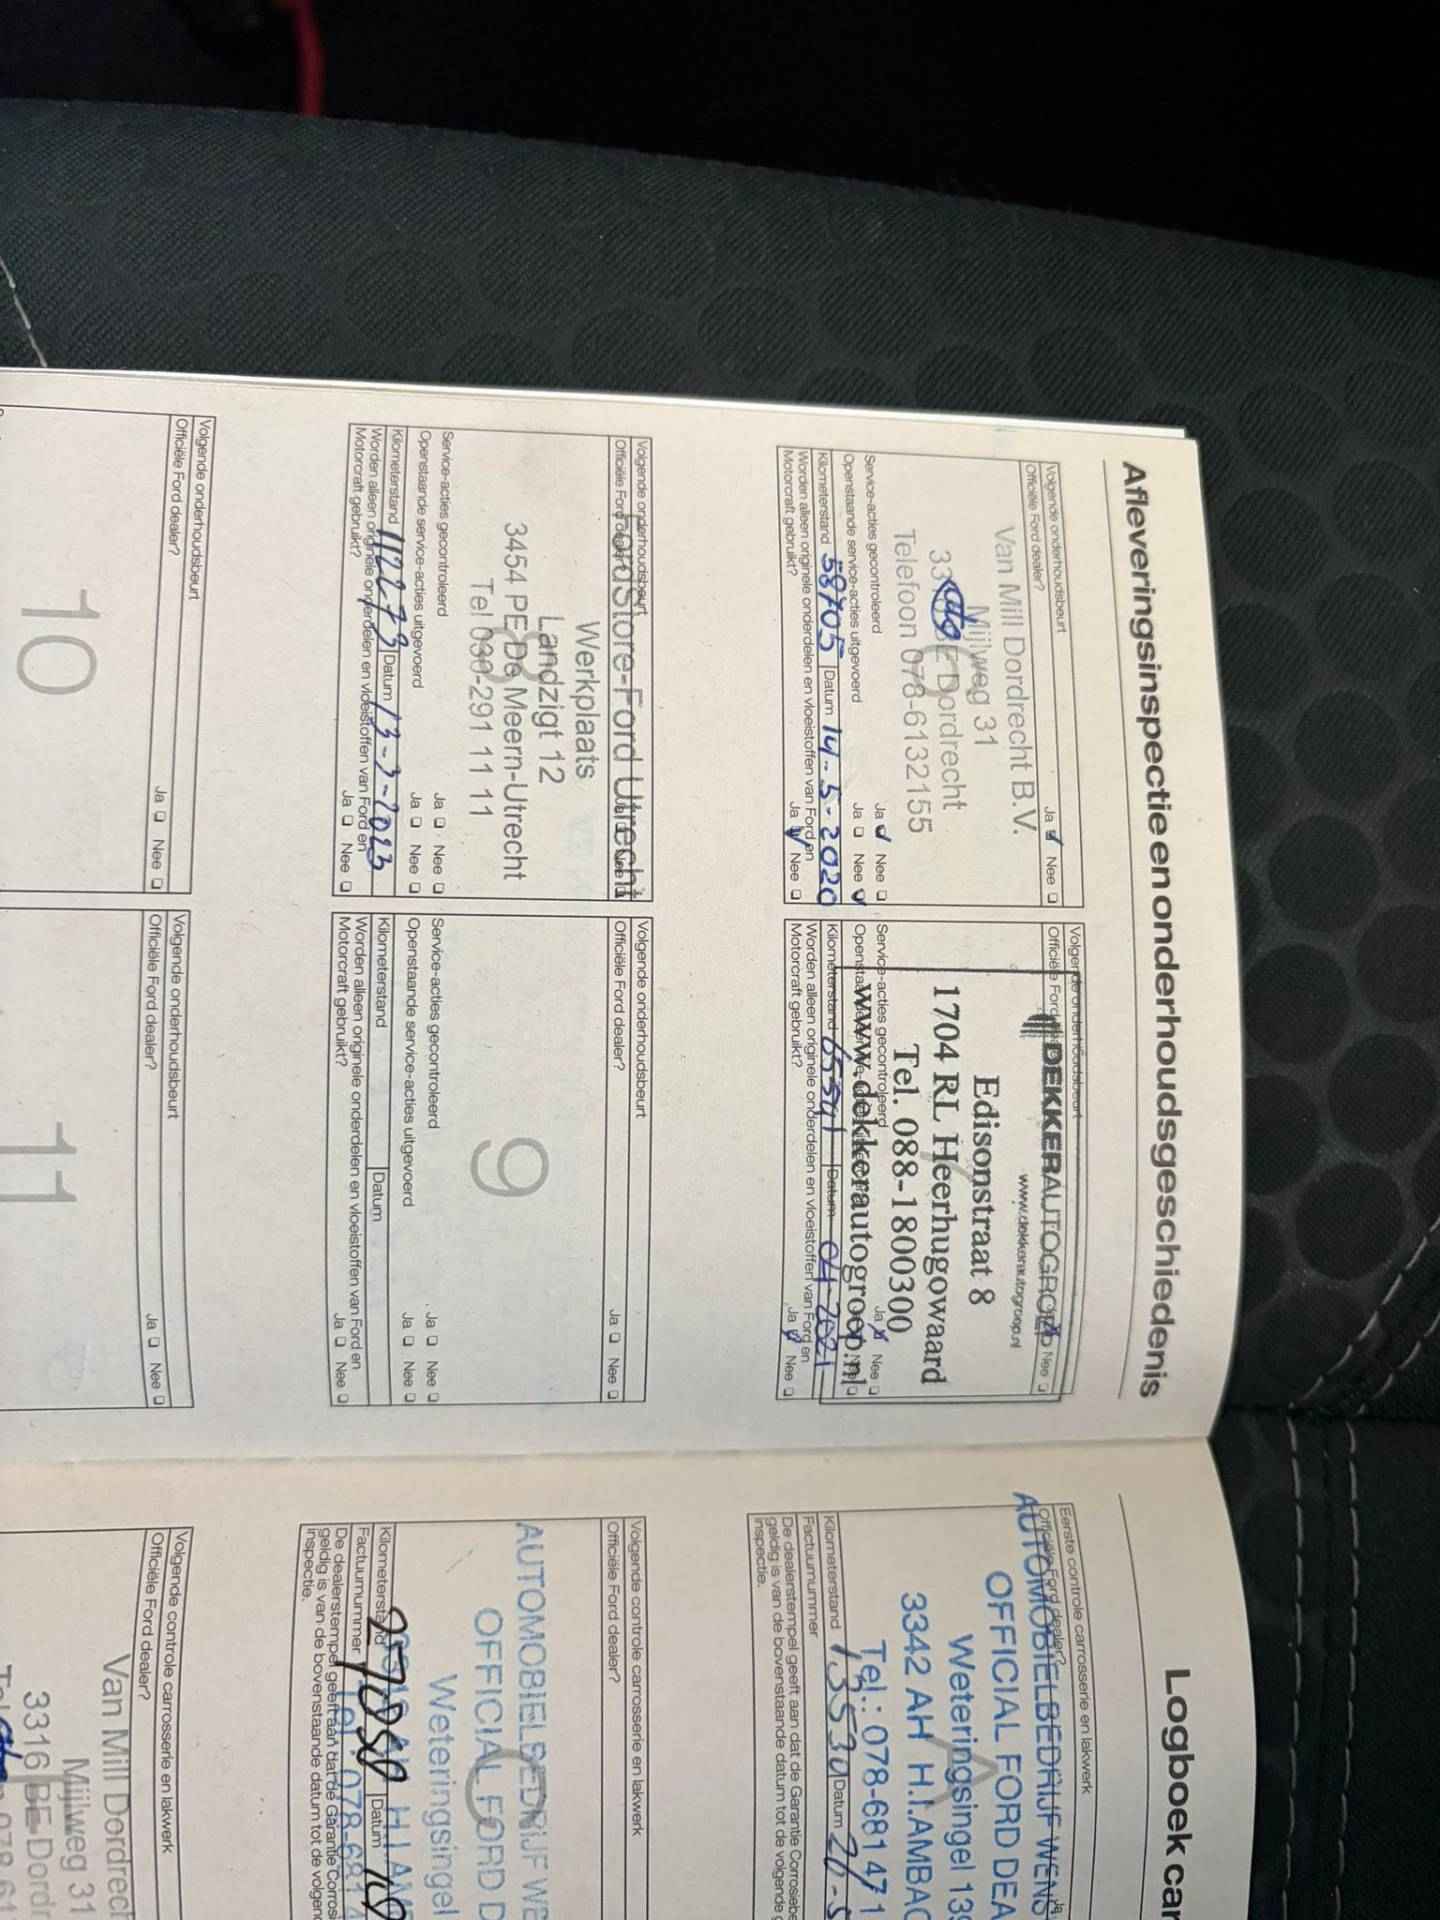 Afleveringsinspectie en onderhoudsgeschiedenis
Volgende onderhoudsbeurt
Officiële Ford dealer? Ja Nee
Van Mill Dordrecht B.V.
Mijlweg 31
Dordrecht
Telefoon 078-6132155
Service-acties gecontroleerd Ja Nee
Openstaande service-acties uitgevoerd Ja Nee
Kilometerstand 58705 Datum 14-5-2020
Worden alleen originele onderdelen en vloeistoffen van Ford en
Motorcraft gebruikt? Ja Nee
Volgende onderhoudsbeurt
Officiële Ford Nee
DEKKERAUTOGROEP
www.dekkerautogroep.nl
Edisonstraat 8
1704 RL Heerhugowaard
Tel. 088-1800300
Service-acties gecontroleerd Ja Nee
www.dekkerautogroep.nl
Kilometerstand Datum 04-2021
Worden alleen originele onderdelen en vloeistoffen van Ford en
Motorcraft gebruikt? Ja Nee
Volgende onderhoudsbeurt
Officiële Ford dealer?
FordStore-Ford Utrecht
Werkplaats
Landzigt 12
3454 PE De Meern-Utrecht
Tel 030-291 11 11
8
Service-acties gecontroleerd Ja Nee
Openstaande service-acties uitgevoerd Ja Nee
Kilometerstand 112273 Datum
Worden alleen originele onderdelen en vloeistoffen van Ford en
Motorcraft gebruikt? Ja Nee
Volgende onderhoudsbeurt
Officiële Ford dealer? Ja Nee
9
Service-acties gecontroleerd Ja Nee
Openstaande service-acties uitgevoerd Ja Nee
Kilometerstand Datum
Worden alleen originele onderdelen en vloeistoffen van Ford en
Motorcraft gebruikt? Ja Nee
Volgende onderhoudsbeurt
Officiële Ford dealer? Ja Nee
10
Volgende onderhoudsbeurt
Officiële Ford dealer? Ja Nee
11
Logboek car
Eerste controle carrosserie en lakwerk
Officiële Ford dealer? Ja
AUTOMOBIELBEDRIJF WENS
OFFICIAL FORD DEA
Weteringsingel 139
3342 AH H.I.AMBAC
Tel.: 078-681 47 1
A
Kilometerstand 13530 Datum 20-5
Factuurnummer
De dealerstempel geeft aan dat de Garantie Corrosiebe
geldig is van de bovenstaande datum tot de volgende
inspectie.
Volgende controle carrosserie en lakwerk
Officiële Ford dealer?
AUTOMOBIELBEDRIJF WE
OFFICIAL FORD D
Weteringsingel
C
Kilometerstand Datum
Factuurnummer
De dealerstempel geeft aan dat de Garantie Corrosi
geldig is van de bovenstaande datum tot de volgen
inspectie.
Volgende controle carrosserie en lakwerk
Officiële Ford dealer?
Van Mill Dordrech
Mijlweg 31
3316 BE Dordr